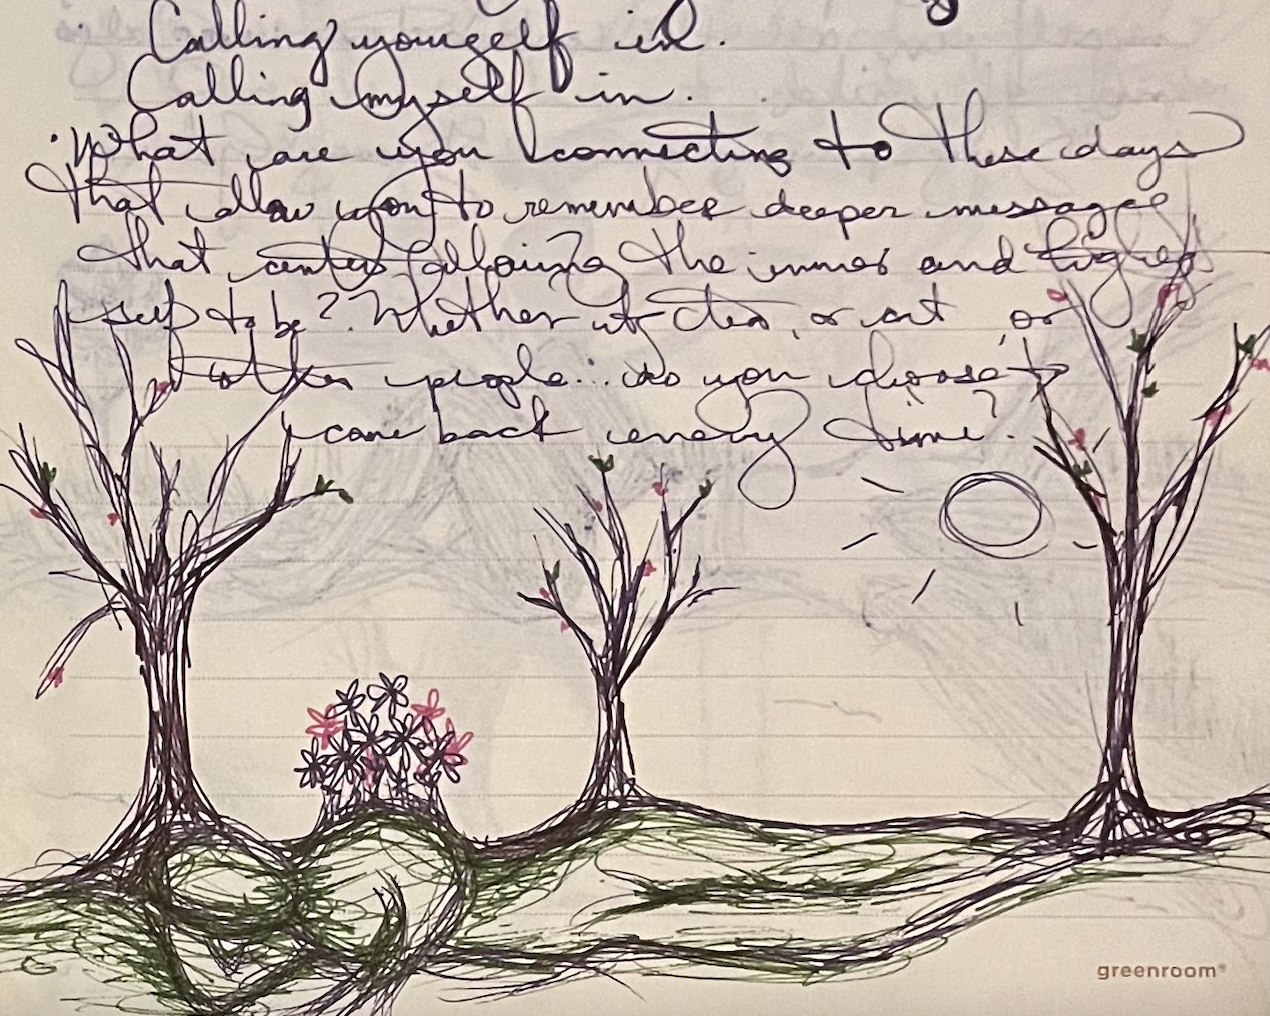 Calling yourself in.
Calling myself in.
What are you connecting to these days
that allow you to remember deeper messages
that center allowing the inner and higher
self to be? Whether it's tea, or art, or
other people... do you choose to
come back every time?
greenroom®